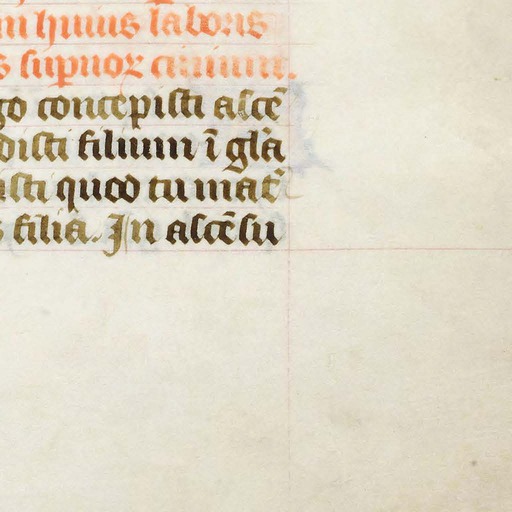 m huius laboris
s supnor ciuium.
go concepisti ascē
disti filium ī gl̄a
isti quod tu mat̄
s filia. In ascēsu